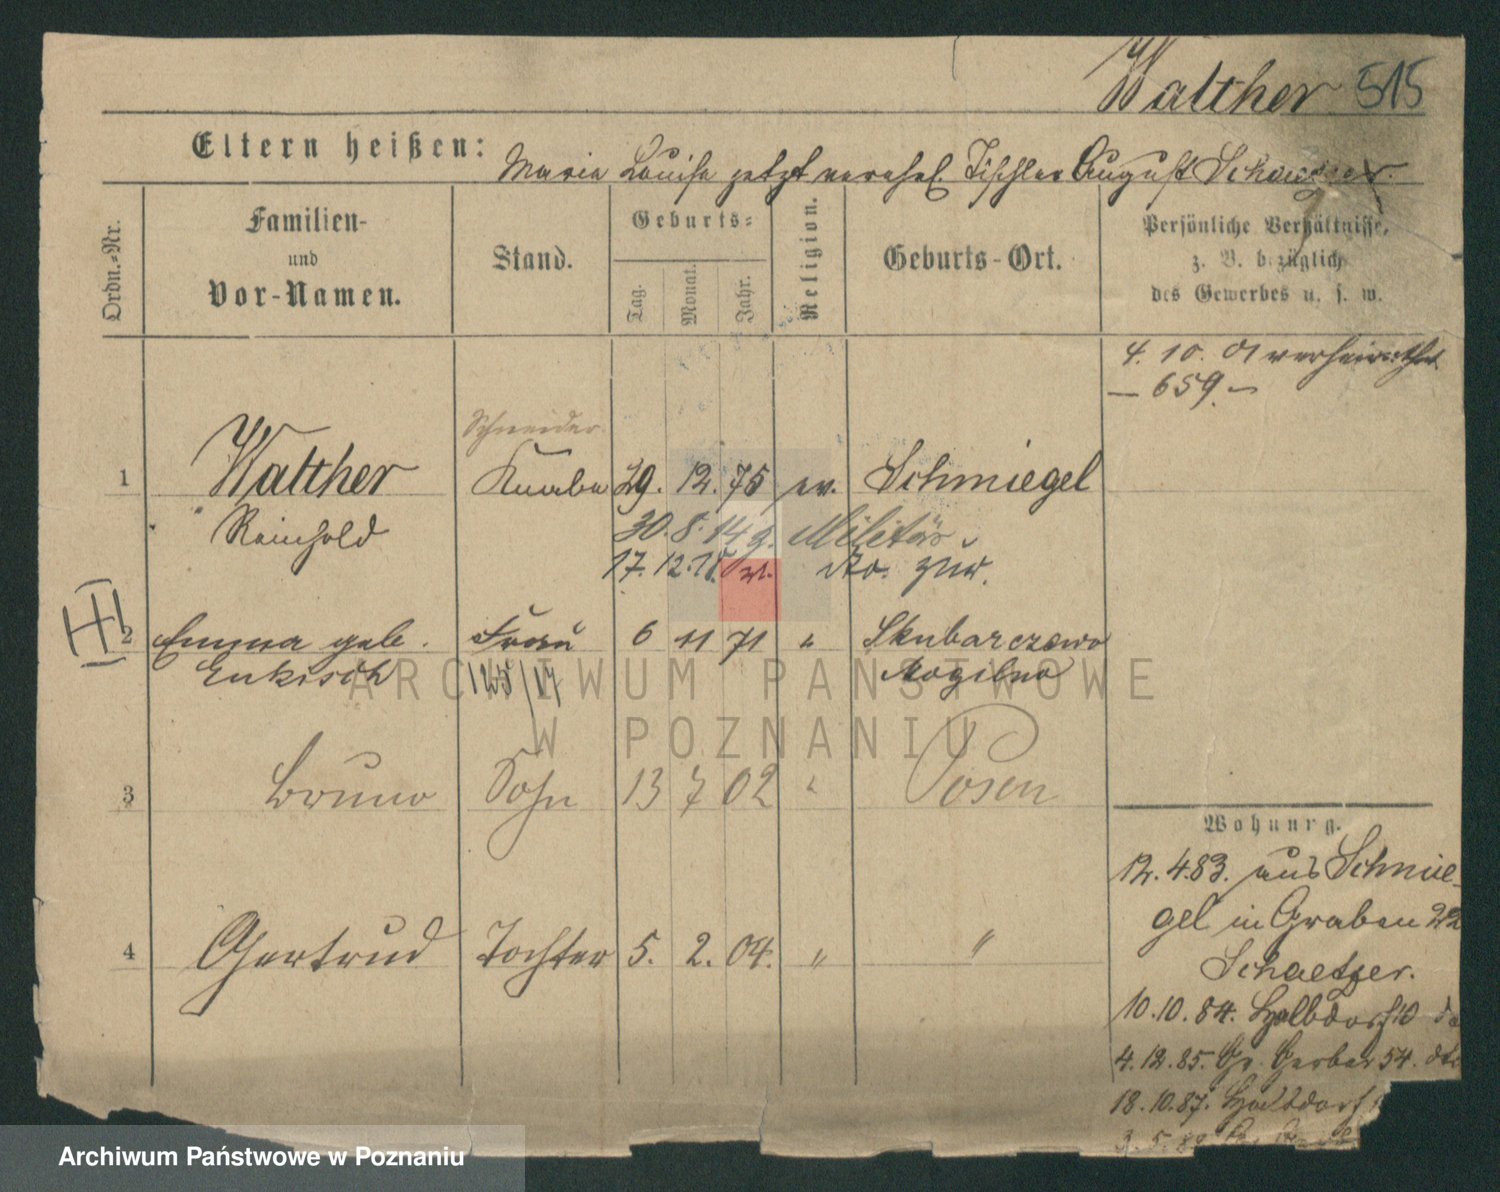 Walther 515
Eltern heißen:
Maria Louise jetzt verehel. Tischler August Schaetzer.
Ordn.-Nr.
Familien-
und
Vor-Namen.
Stand.
Geburts-
Tag.
Monat.
Jahr.
Religion.
Geburts-Ort.
Persönliche Verhältnisse,
z. B. bezüglich
des Gewerbes u. s. w.
4. 10. 01 verheirathet
— 659. —
Schneider
1 Walther Knabe 29. 12. 75 ev. Schmiegel
Reinhold
30. 8. 14 z. Militär
17. 12. dto. zur.
2 Emma geb. Frau 6 11 71 " Skubarczewo
Enkisch 125/17 Mogilno
3 Bruno Sohn 13 7 02 " Posen
4 Gertrud Tochter 5. 2. 04. " "
Wohnung.
12. 4. 83. aus Schmie-
gel in Graben 22
Schaetzer.
10. 10. 84. Halbdorf 10
4. 12. 85. Gr. Gerber 54. dto
18. 10. 87. Halbdorf
ARCHIWUM PAŃSTWOWE
W POZNANIU
Archiwum Państwowe w Poznaniu